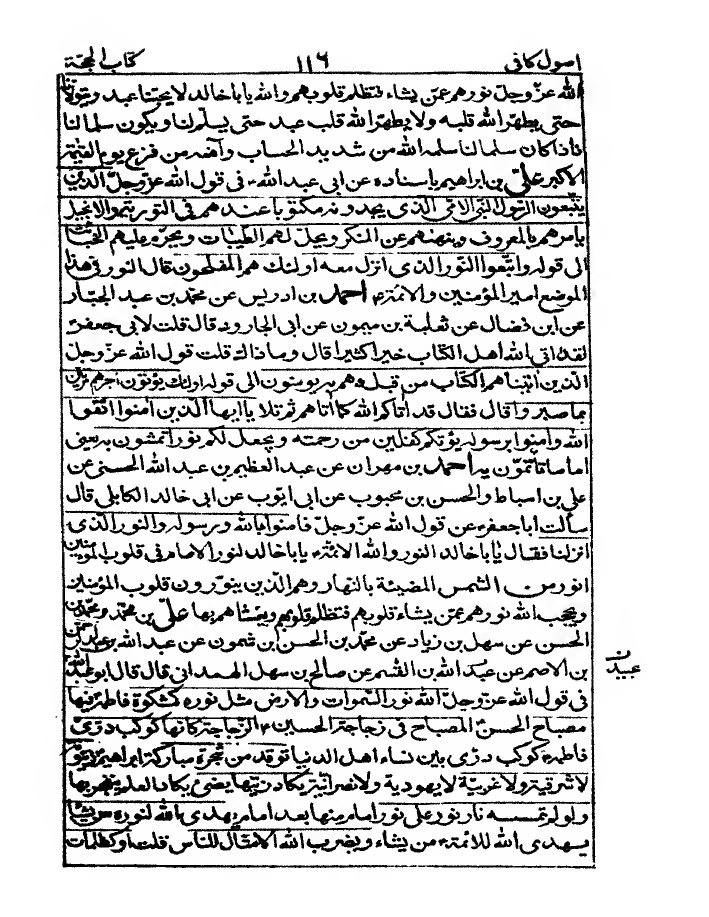 اصول کافی ١١٦ کتاب الحجّة
الله عزّ وجلّ نورهم عمّن یشاء فتظلم قلوبهم والله یا باخالد لا یحبّنا عبد ویتولّانا
حتی یطهّر الله قلبه ولا یطهّر الله قلب عبد حتی یسلّم لنا ویکون سلما لنا
فاذا کان سلما لنا سلمه الله من شدید الحساب وآمنه من فزع یوم القیمة
الاکبر علیّ بن ابراهیم باسناده عن ابی عبد الله ع فی قول الله عزّ وجلّ الذین
یتّبعون الرّسول النّبیّ الامّی الذی یجدونه مکتوبا عندهم فی التوریة والانجیل
یامرهم بالمعروف وینهیهم عن المنکر ویحلّ لهم الطیّبات ویحرّم علیهم الخبائث
الی قوله واتّبعوا النّور الذی انزل معه اولئک هم المفلحون قال النور فی هذا
الموضع امیر المؤمنین والائمّة ع احمد بن ادریس عن محمّد بن عبد الجبّار
عن ابن فضال عن ثعلبة بن میمون عن ابی الجارود قال قلت لابی جعفر ع
لقد اتی الله اهل الکتاب خیرا کثیرا قال وما ذاک قلت قول الله عزّ وجلّ
الّذین اتیناهم الکتاب من قبله هم به یومنون الی قوله اولئک یؤتون اجرهم مرّتین
بما صبروا قال فقال قد آتاکم الله کما آتاهم ثم تلا یا ایها الّذین امنوا اتّقوا
الله وامنوا برسوله یؤتکم کفلین من رحمته ویجعل لکم نورا تمشون به یعنی
اماما تاتمّون به احمد بن مهران عن عبد العظیم بن عبد الله الحسنی عن
علی بن اسباط والحسن بن محبوب عن ابی ایّوب عن ابی خالد الکابلی قال
سألت ابا جعفر ع عن قول الله عزّ وجلّ فامنوا بالله ورسوله والنور الّذی
انزلنا فقال یا باخالد النور والله الائمّة ع یا باخالد لنور الامام فی قلوب المؤمنین
انور من الشمس المضیئة بالنهار وهم الّذین ینوّرون قلوب المؤمنین
ویحجب الله نورهم عمّن یشاء فتظلم قلوبهم ویغشاهم بها علیّ بن محمّد ومحمّد بن
الحسن عن سهل بن زیاد عن محمّد بن الحسن بن شمون عن عبد الله بن عبد الرحمن
بن الاصم عن عبد الله بن القسم عن صالح بن سهل الهمدانی قال قال ابو عبد الله
فی قول الله عزّ وجلّ الله نور السّموات والارض مثل نوره کمشکوة فاطمة ع فیها
مصباح الحسن المصباح فی زجاجة الحسین ع الزّجاجة کانها کوکب درّی
فاطمة ع کوکب درّی بین نساء اهل الدنیا توقد من شجرة مبارکة ابراهیم زیتونة
لا شرقیة ولا غربیّة لا یهودیة ولا نصرانیّة یکاد زیتها یضیء یکاد العلم ینفجر بها
ولو لم تمسسه نار نور علی نور امام منها بعد امام یهدی الله لنوره من یشاء
یهدی الله للائمّة ع من یشاء ویضرب الله الامثال للناس قلت او کظلمات